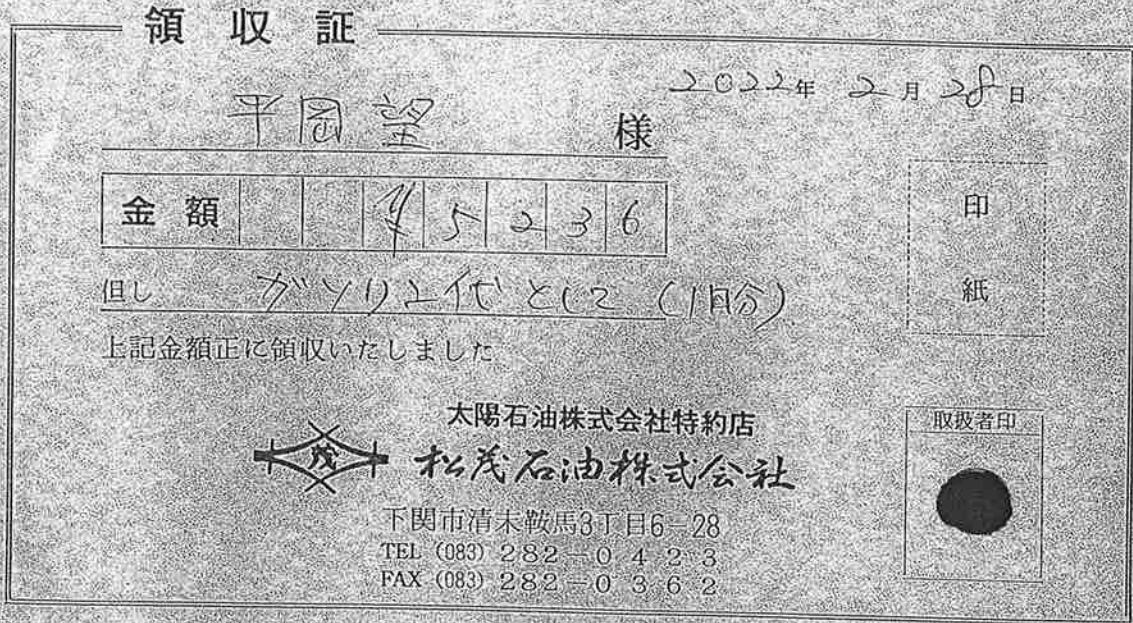 領収証
2022年 2月 28日
平岡望 様
金額 ¥5236
但し ガソリン代として (1月分)
上記金額正に領収いたしました
印
紙
太陽石油株式会社特約店
茂 松茂石油株式会社
下関市清末鞍馬3丁目6-28
TEL (083) 282-0423
FAX (083) 282-0362
取扱者印